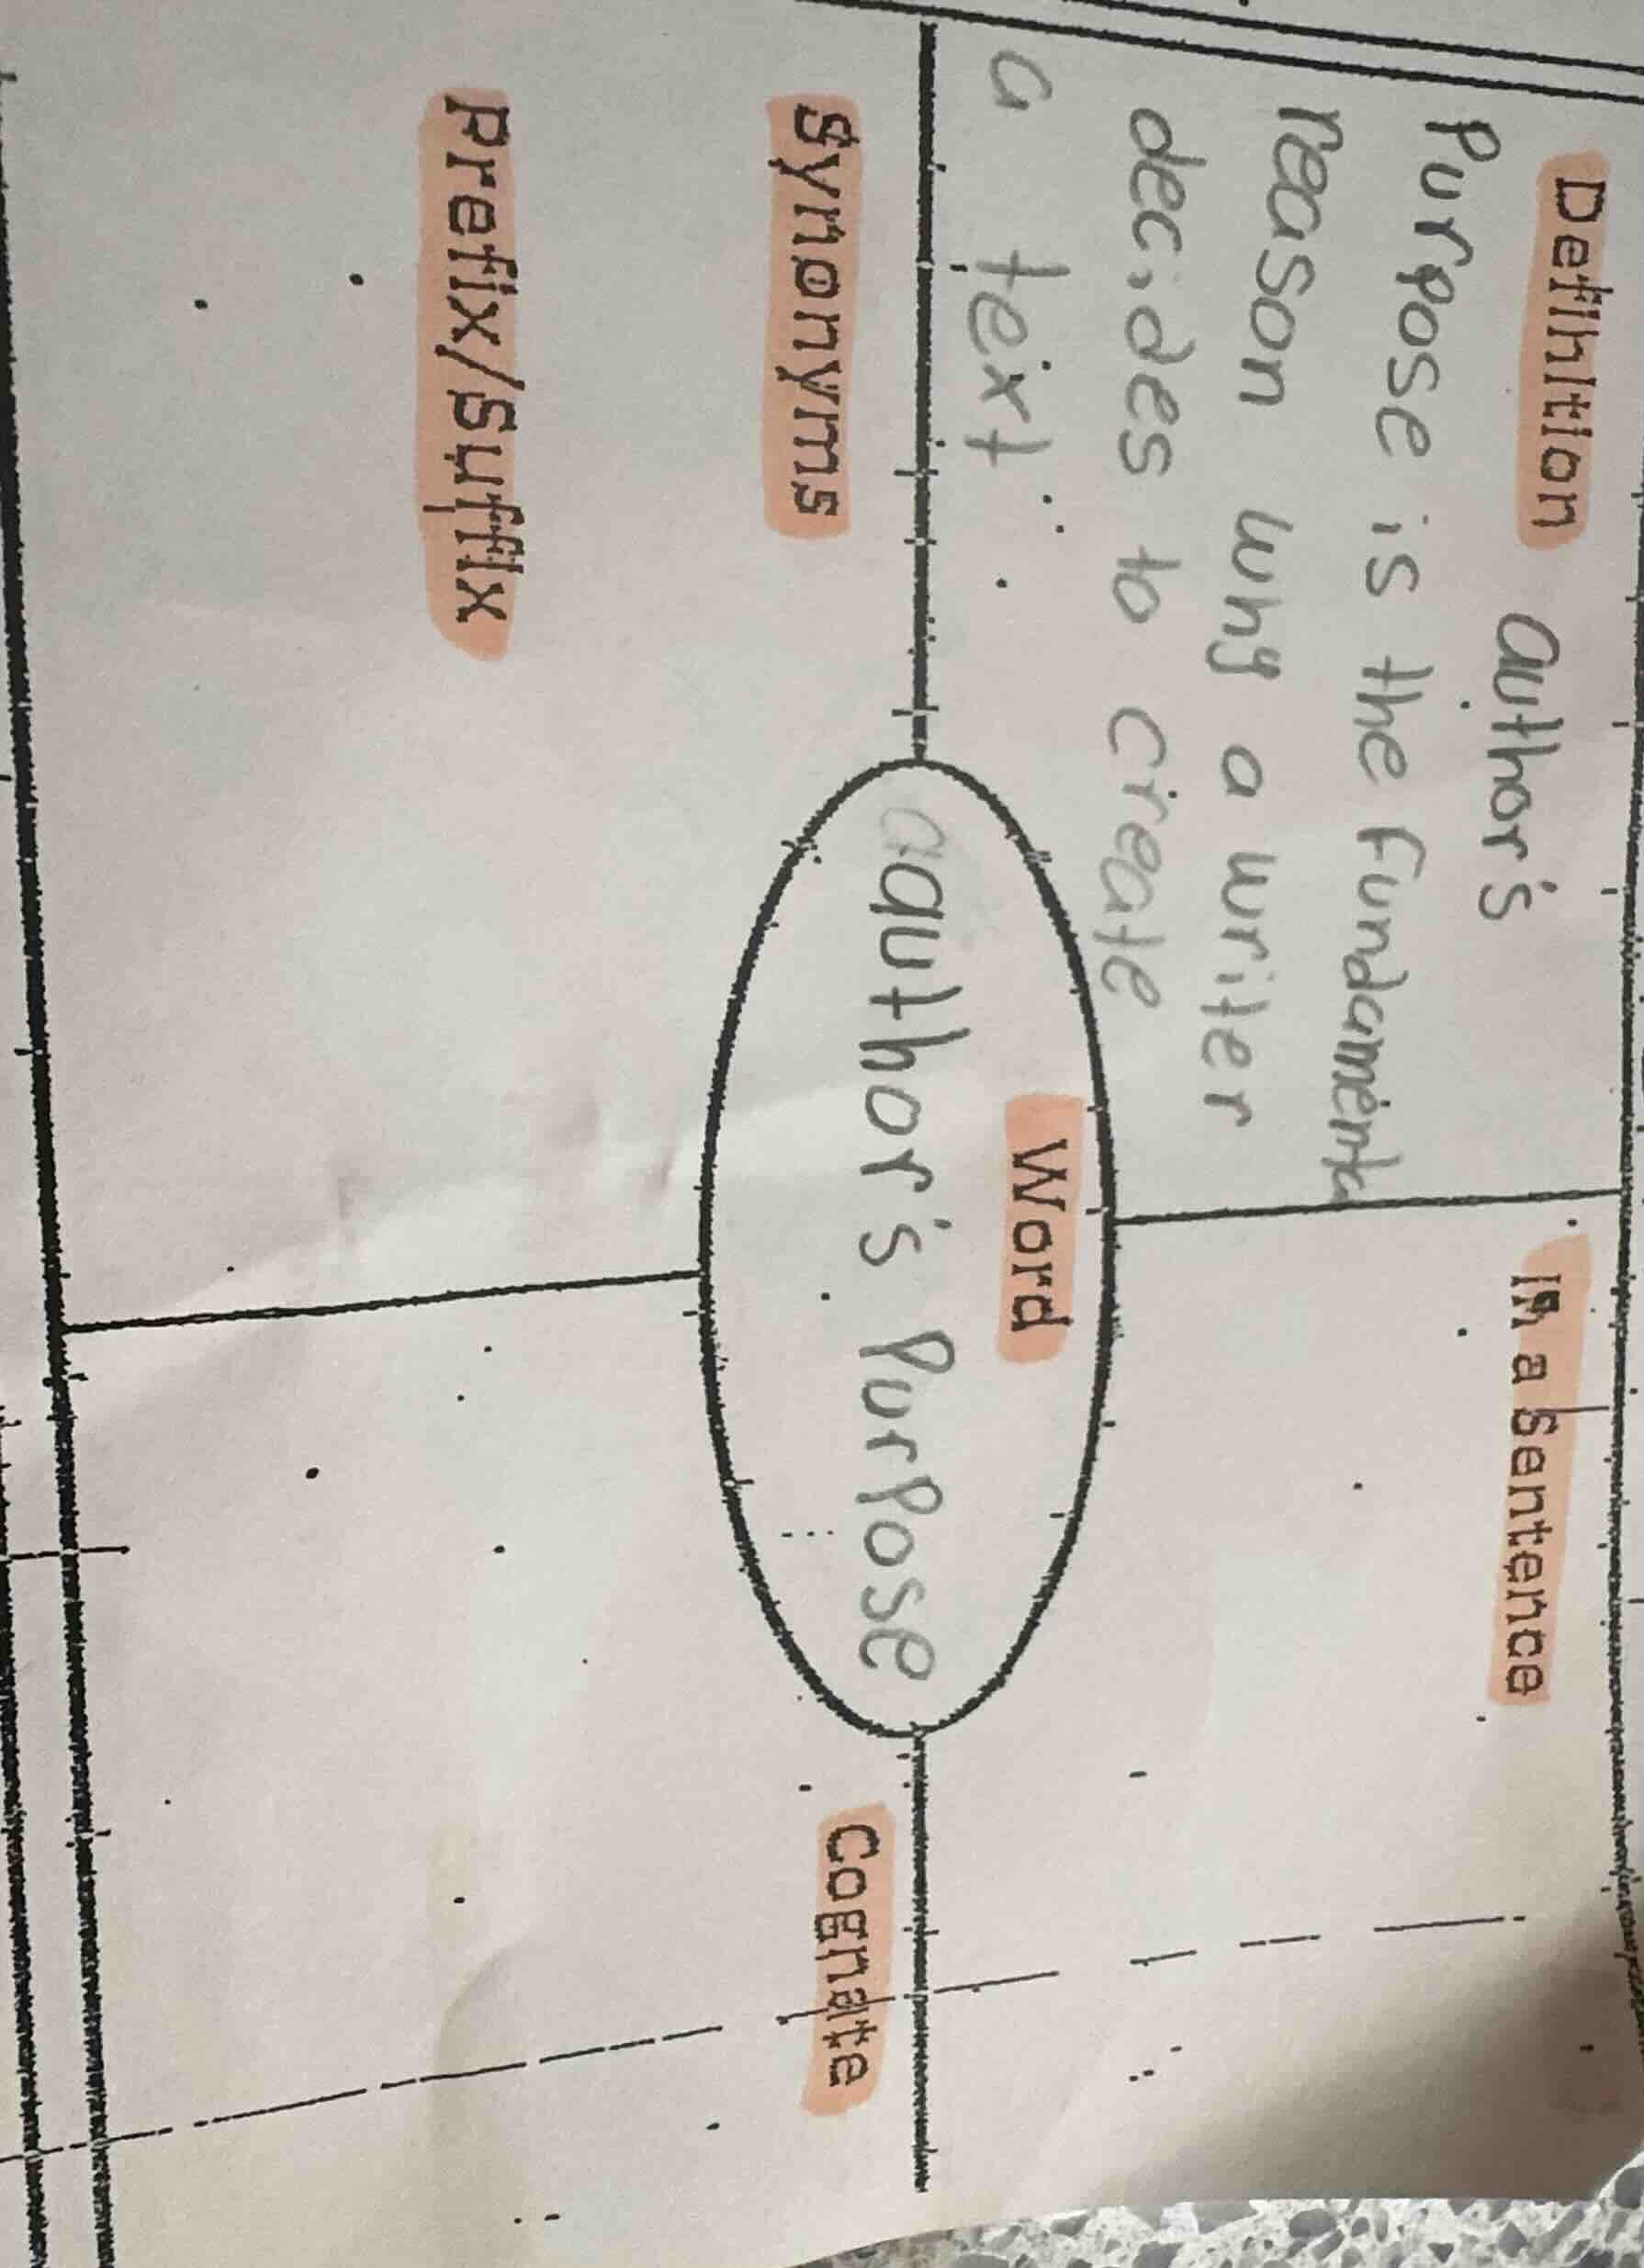 Definition author's
Purpose is the fundamenta
reason why a writer
decides to create
a text
In a Sentence
Word
author's Purpose
Synonyms
Prefix/Suffix
Cognate